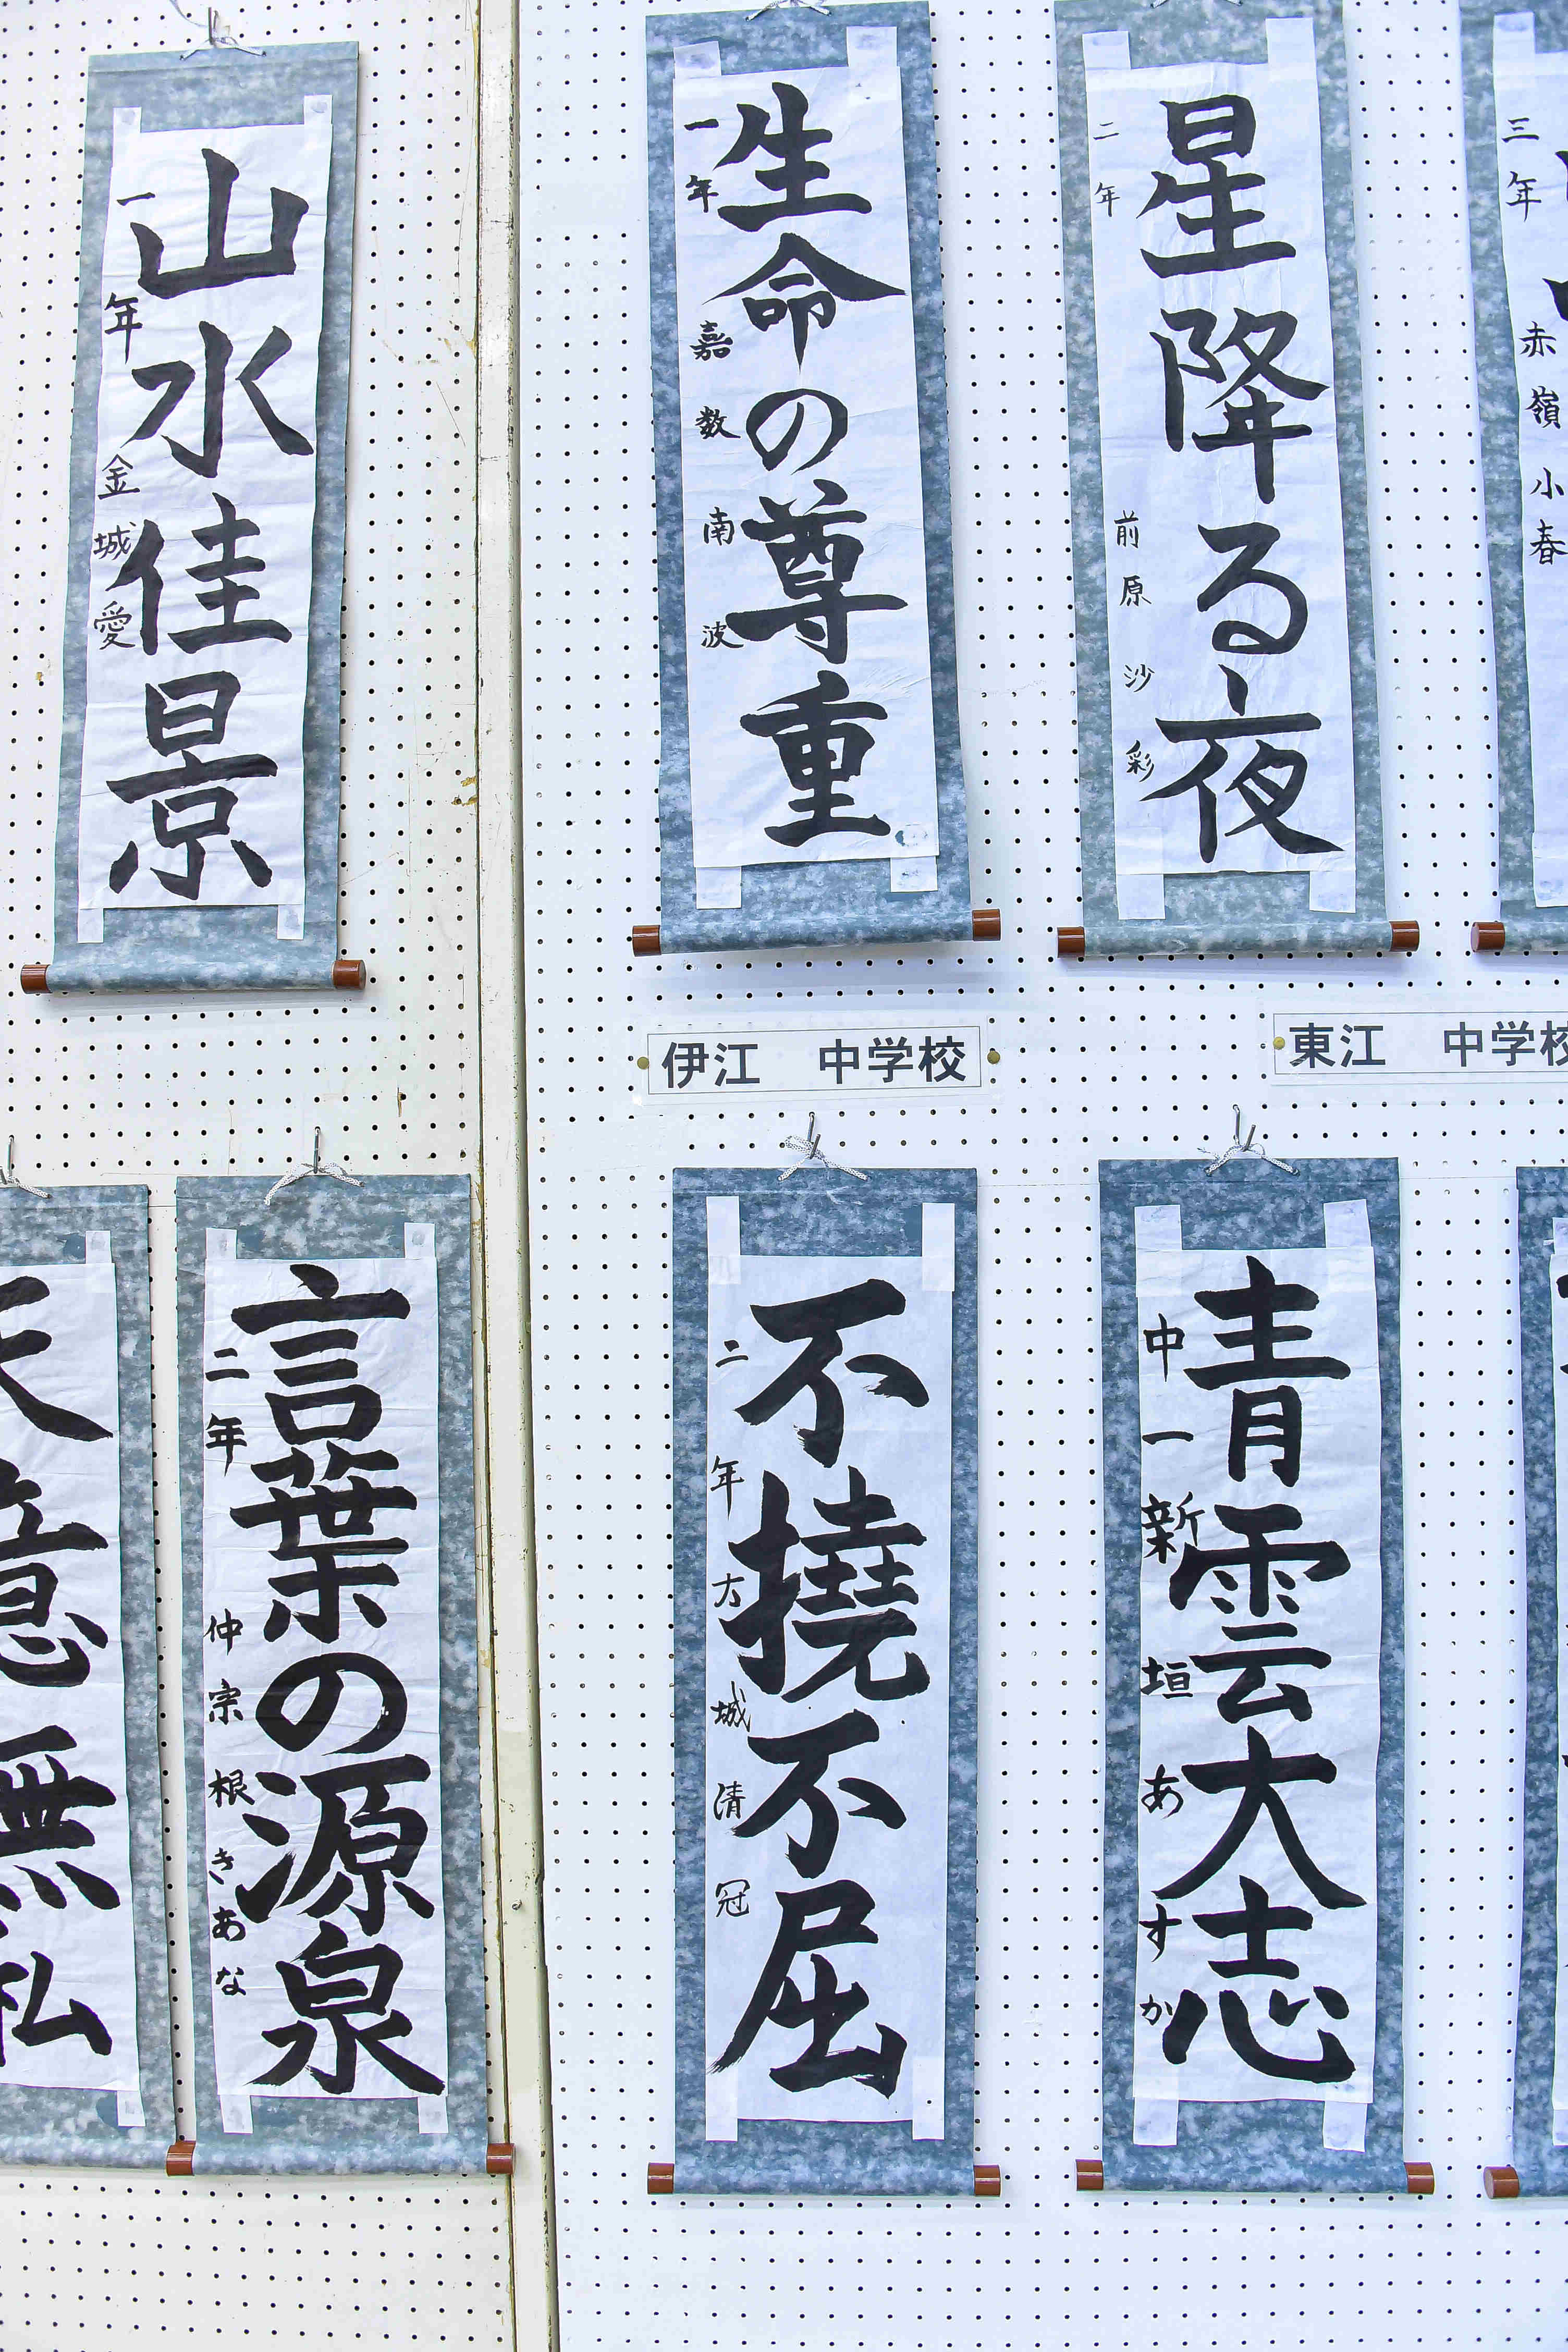 山水佳景
一年 金城愛
生命の尊重
一年 嘉数南波
星降る夜
二年 前原沙彩
三年 赤嶺小春
伊江 中学校
東江 中学校
意無私
言葉の源泉
二年 仲宗根きあな
不撓不屈
二年 大城清冠
青雲大志
中一 新垣あすか